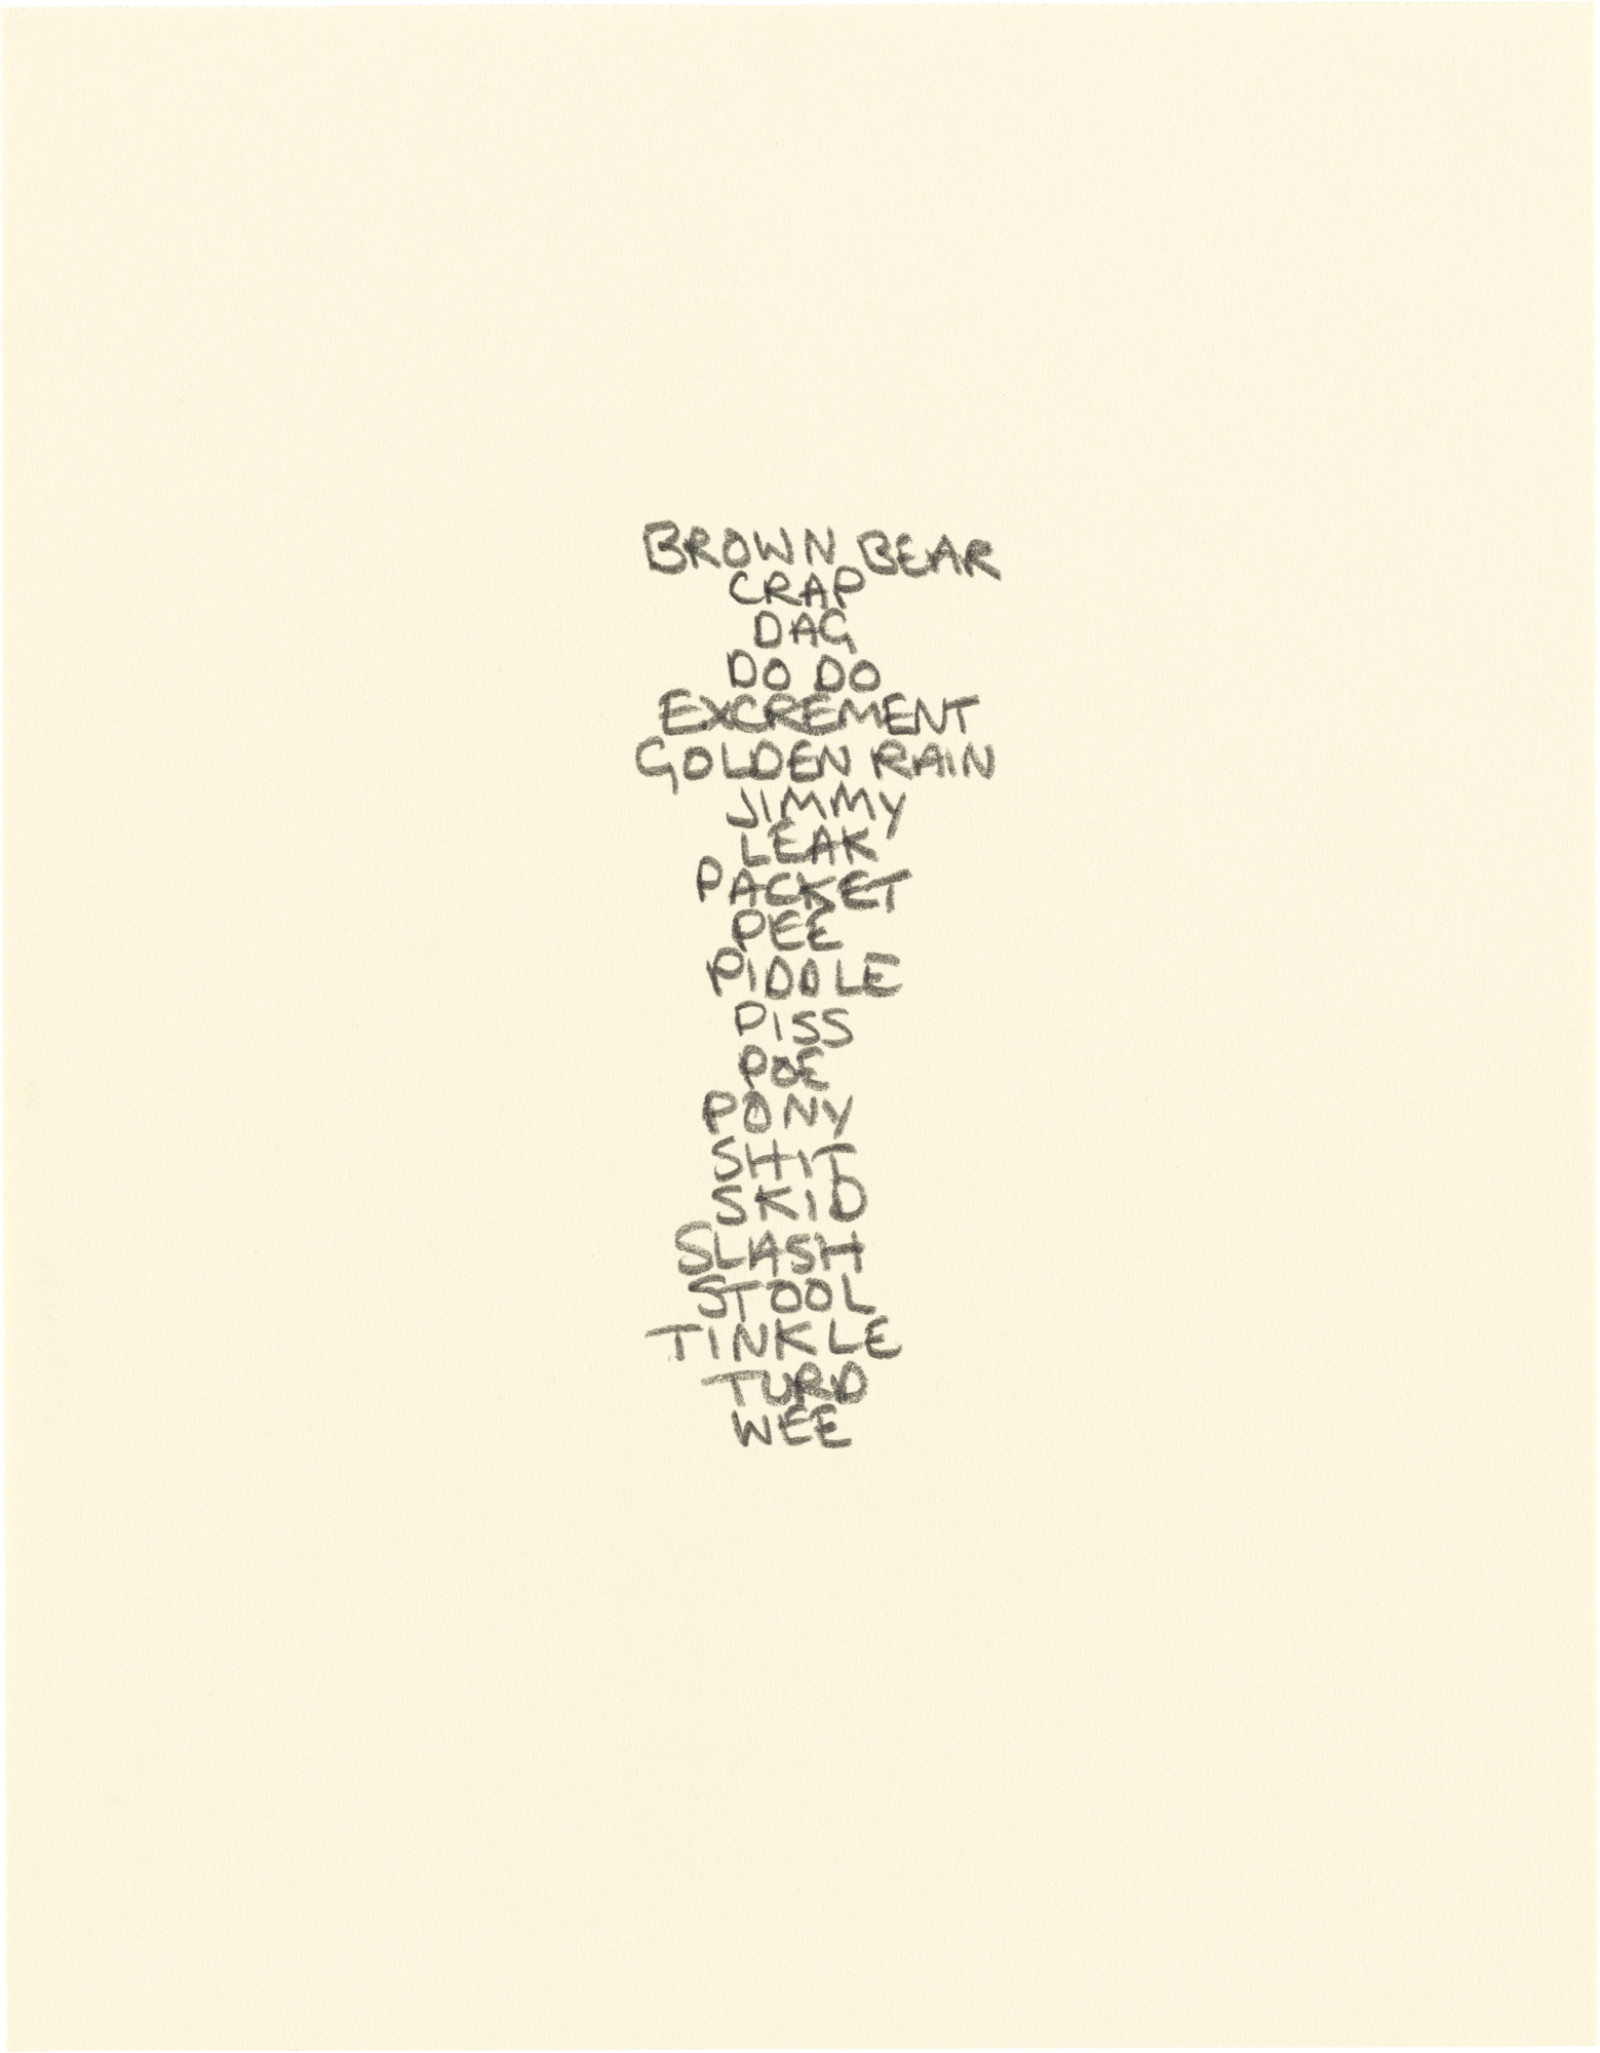 BROWN BEAR
CRAP
DAG
DO DO
EXCREMENT
GOLDEN RAIN
JIMMY
LEAK
PACKET
PEE
PIDDLE
PISS
POE
PONY
SHIT
SKID
SLASH
STOOL
TINKLE
TURD
WEE